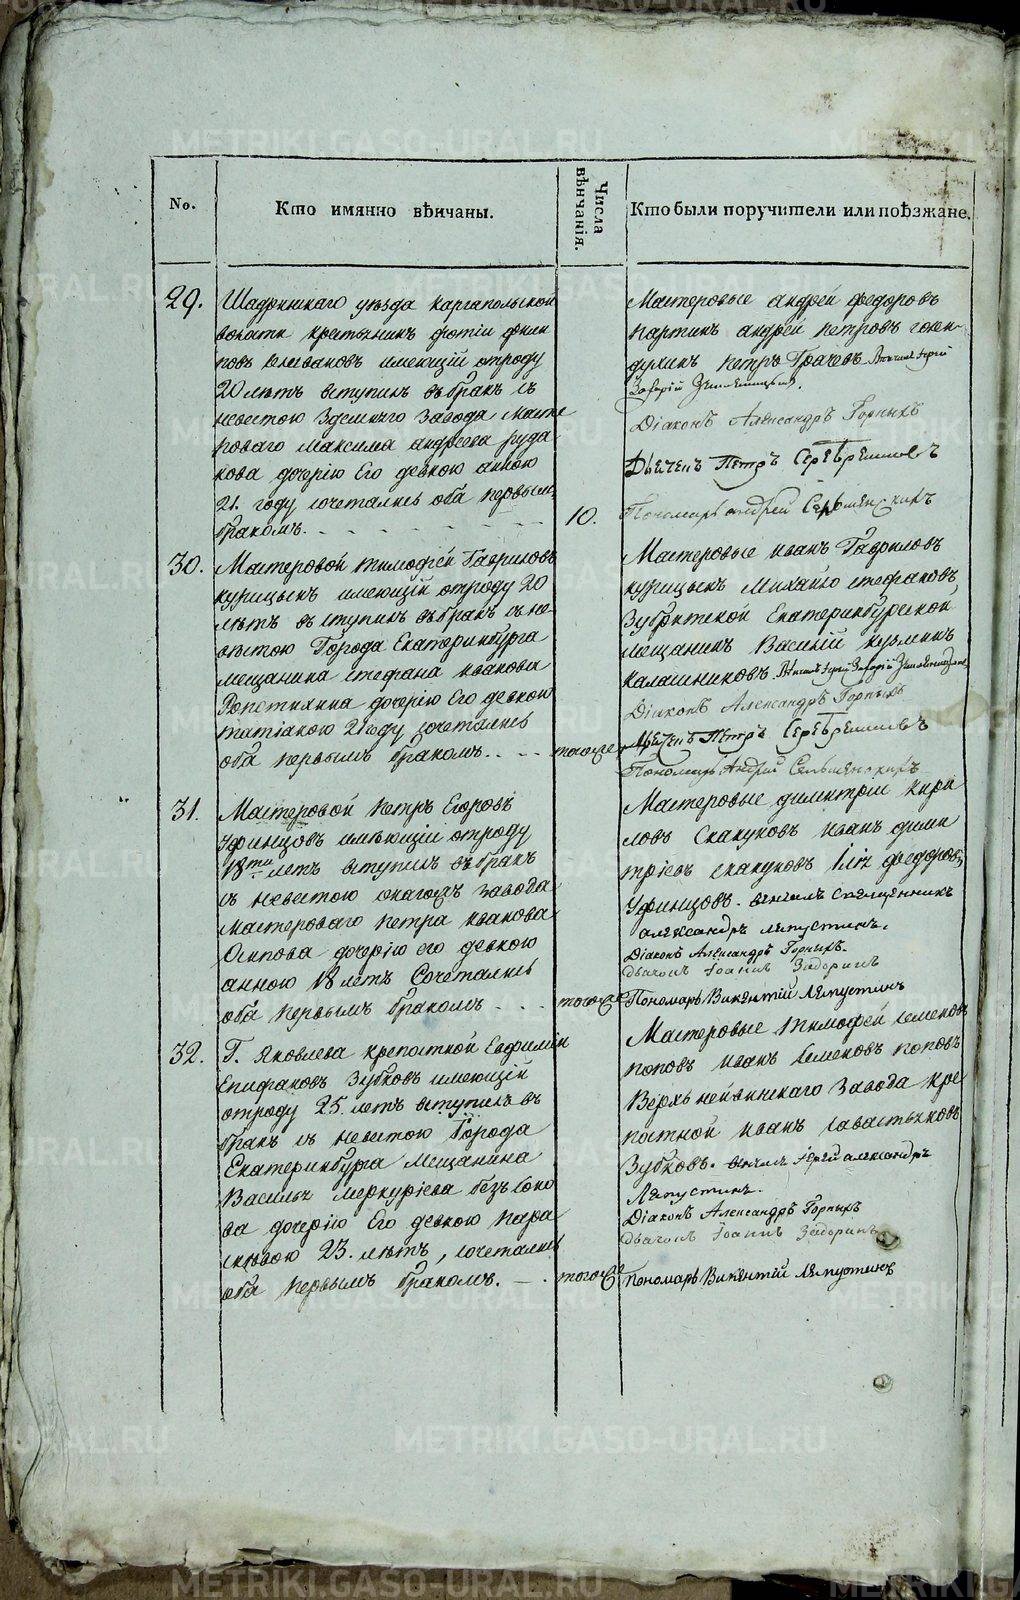 METRIKI.GASO-URAL.RU
No.
Кто имянно вѣнчаны.
Числа вѣнчанія.
Кто были поручители или поѣзжане.
29.
Шадринскаго уѣзда Каргапольской
волости крестьянинъ Фотій Филип
повъ имеющій отроду
20 летъ вступилъ въ бракъ съ
невестою здешняго завода масте
роваго Максима Андреева Руда
кова дочерію Его девкою Анною
21. году сочетались оба первымъ
бракомъ.
10.
Мастеровые Андрей Федоровъ
Андрей Петровъ
Петръ Грачевъ
Захарій
Діаконъ Александръ Горныхъ
Дьячекъ Петръ Серебренниковъ
Пономарь Андрей
30.
Мастеровой Тимофей Гавриловъ
Курицынъ имеющій отроду 20
летъ вступилъ въ бракъ съ не
вѣстою Города Екатеринбурга
мещанина Стефана Иванова
дочерію Его девкою
Татіаною 21 году сочетались
оба первымъ бракомъ.
тогоже
Мастеровые Иванъ Гавриловъ
Курицынъ Михайло Стефановъ
Екатеринбургской
мещанинъ Василій Кузминъ
Калашниковъ Захарій
Діаконъ Александръ Горныхъ
Петръ Серебренниковъ
Пономарь Андрей
31.
Мастеровой Петръ Егоровъ
Уфинцовъ имѣющій отроду
18ти летъ вступилъ въ бракъ
съ невестою онагожъ завода
мастероваго Петра Иванова
Осипова дочерію его девкою
Анною 18 летъ Сочетались
оба первымъ бракомъ
тогоже
Мастеровые Димитрій Кири
ловъ Скакуновъ Иванъ Дими
тріевъ Скакуновъ Федоровъ
Уфинцовъ. Венчалъ священникъ
Александръ Ляпустинъ.
Діаконъ Александръ Горныхъ.
Дьячокъ Іоаннъ Задоринъ
Пономарь Викентій Ляпустинъ
32.
Г. Яковлева крепостной Евфимій
Епифановъ Зубковъ имеющій
отроду 25. летъ вступилъ въ
бракъ съ невестою Города
Екатеринбурга мещанина
Василья Меркуріева Безсоно
ва дочерію Его девкою Пара
скѣвою 23. лѣтъ, сочетались
оба первымъ бракомъ.
тогоже
Мастеровые Тимофей Семеновъ
Поповъ Иванъ Семеновъ Поповъ
Верхънейвинскаго завода кре
постной Иванъ Савастьяновъ
Зубковъ. Венчалъ Іерей Александръ
Ляпустинъ.
Діаконъ Александръ Горныхъ
Дьячокъ Іоаннъ Задоринъ
Пономарь Викентій Ляпустинъ